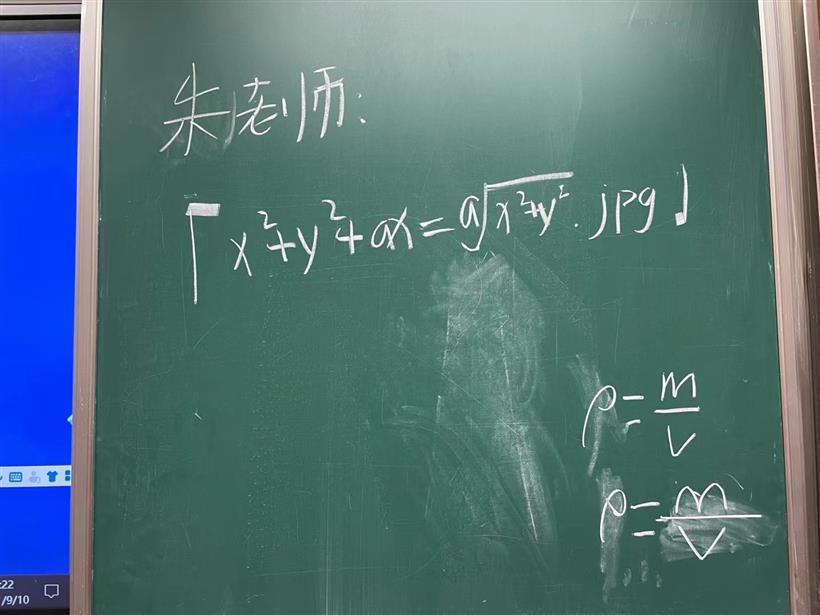 朱老师:
「x²+y²+ax=a√x²+y².jpg」
ρ=m/v
ρ=m/v
:22
/9/10